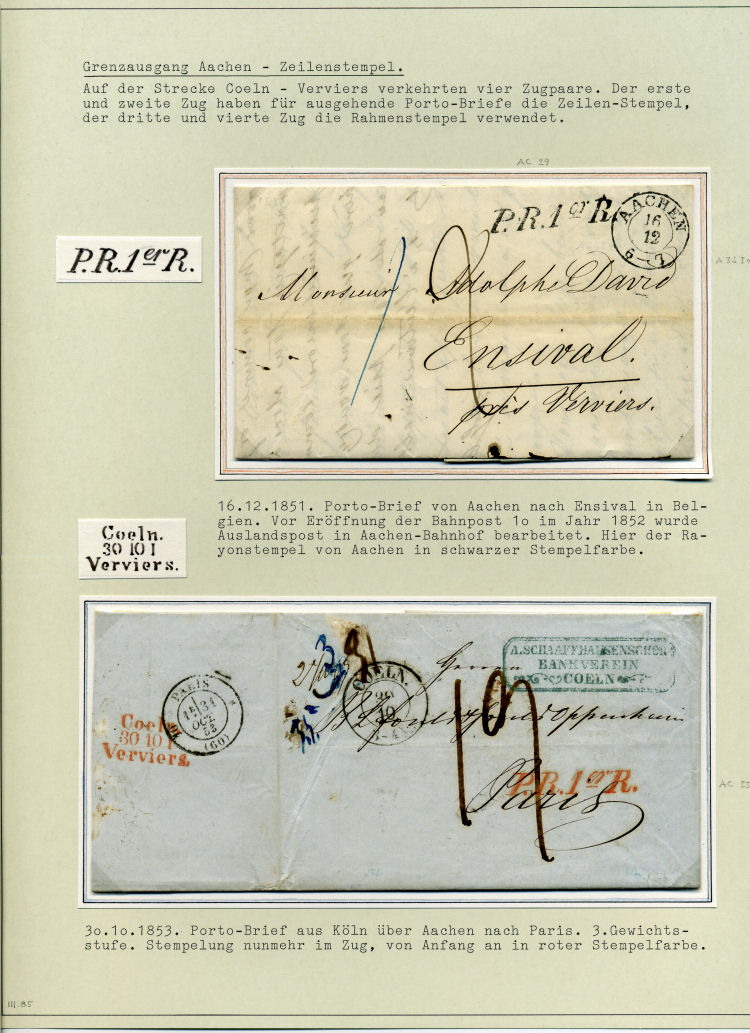 Grenzausgang Aachen - Zeilenstempel.
Auf der Strecke Coeln - Verviers verkehrten vier Zugpaare. Der erste
und zweite Zug haben für ausgehende Porto-Briefe die Zeilen-Stempel,
der dritte und vierte Zug die Rahmenstempel verwendet.
AC 29
P.R.1er R.
P.R.1er R.
AACHEN
16
12
6-7
Monsieur Adolphe David
Ensival.
près Verviers.
16.12.1851. Porto-Brief von Aachen nach Ensival in Bel-
gien. Vor Eröffnung der Bahnpost 1o im Jahr 1852 wurde
Auslandspost in Aachen-Bahnhof bearbeitet. Hier der Ra-
yonstempel von Aachen in schwarzer Stempelfarbe.
Coeln.
30 10 I
Verviers.
A. SCHAAFFHAUSENSCHER
BANKVEREIN
COELN
PARIS
31
OCT.
53
(60)
COELN.
Herren
Oppenheim
Coeln
30 10 I
Verviers
P.R.1er R.
Paris
3o.1o.1853. Porto-Brief aus Köln über Aachen nach Paris. 3.Gewichts-
stufe. Stempelung nunmehr im Zug, von Anfang an in roter Stempelfarbe.
III.85